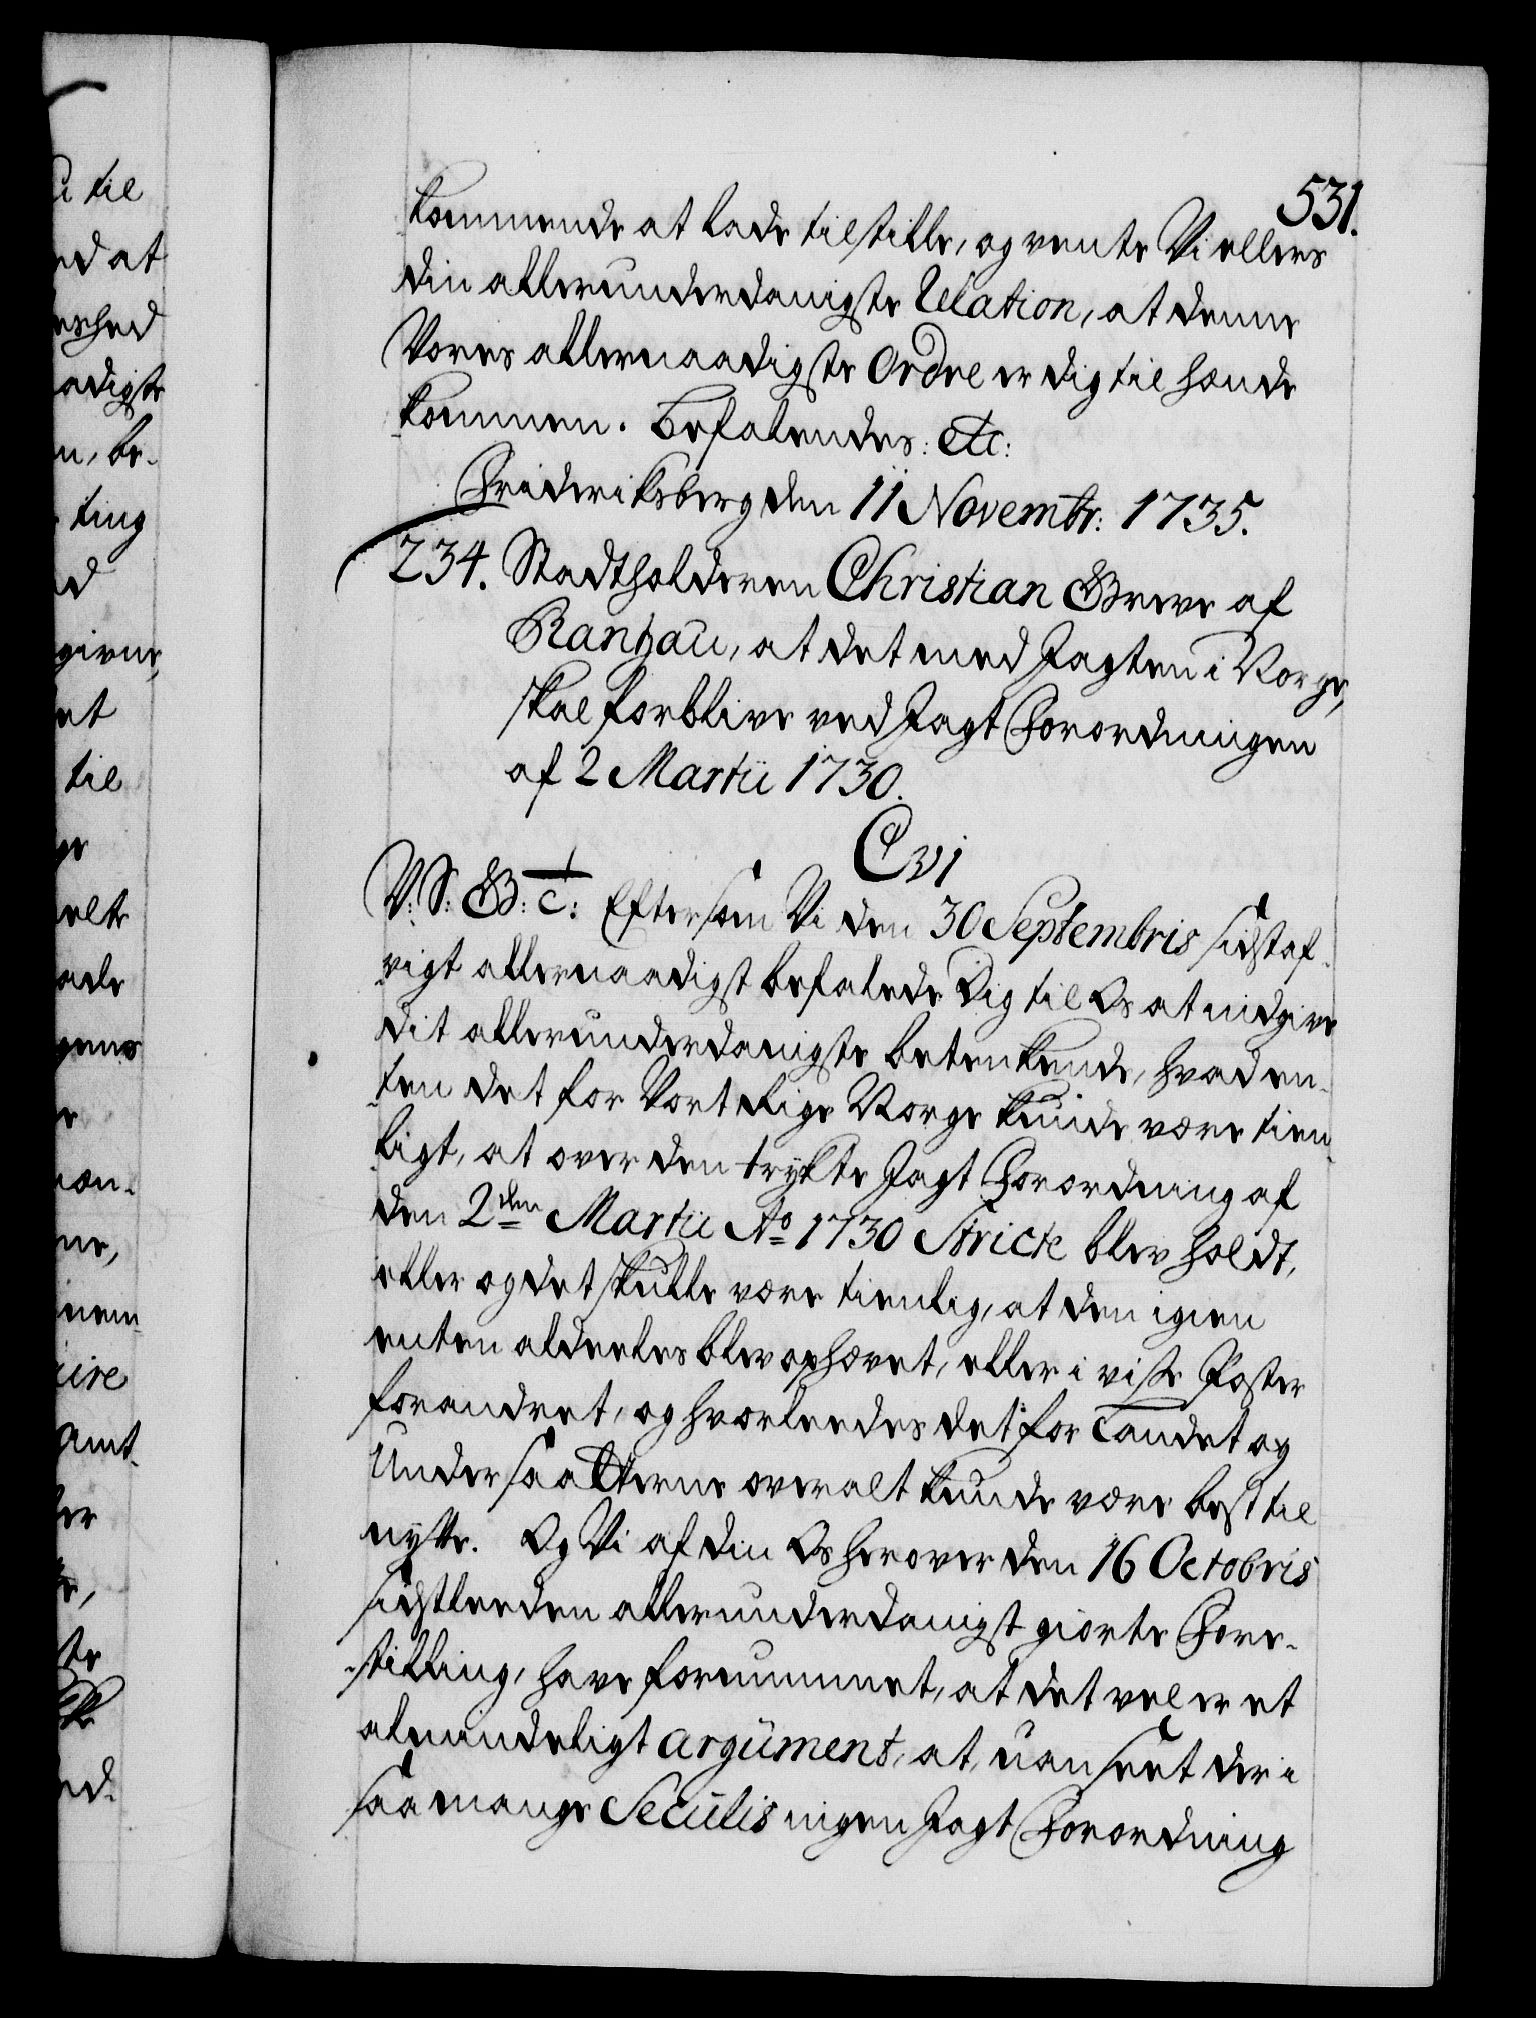 531.
kommende at lade tilstille, og vente Vi ellers
din allerunderdanigste Relation, at denne
Vores allernaadigste Ordre er dig til hænde
kommen. Befalendes: etc:
Friderichsberg den 11 Novembr: 1735.
234. Stadtholderen Christian Greve af
Rantzau, at det med Jagten i Norge,
skal forblive ved Jagt Forordningen
af 2 Martii 1730.
C VI
V: S: G: c: Eftersom Vi den 30 Septembris sidst af-
vigt allernaadigst befalede Dig til Os at indgive
dit allerunderdanigste betenkende, hvad en-
ten det for Vort Rige Norge kunde være tien-
ligt, at over den trykte Jagt Forordning af
den 2den Martii Ao 1730 Stricte blev holdt,
eller og det skulle være tienlig, at den igien
enten aldeeles blev ophævet, eller i visse Poster
forandret, og hvorleedes det for Landet og
Undersaatterne overalt kunde være best til
nytte. Og Vi af din Os herover den 16 Octobris
sidstleeden allerunderdanigst giorte Fore-
stilling, have fornummet, at det vel er et
almindeligt argument, at, uanseet der i
saa mange Seculis ingen Jagt Forordning
u til
ed at
eshed
aadigste
n, be-
ting
d
givne,
et
til
ge
elte
ade
gens
r
mon-
ne,
nem-
ire
amt-
er
te
ed.